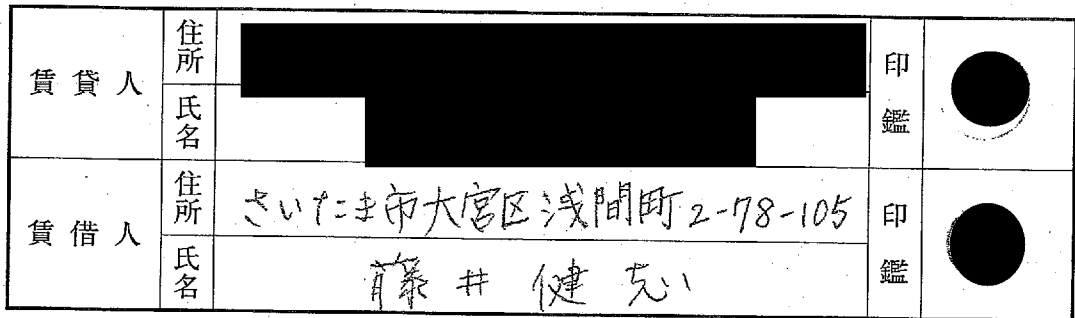 賃貸人
住所
印鑑
氏名
賃借人
住所 さいたま市大宮区浅間町2-78-105
印鑑
氏名 藤井健志